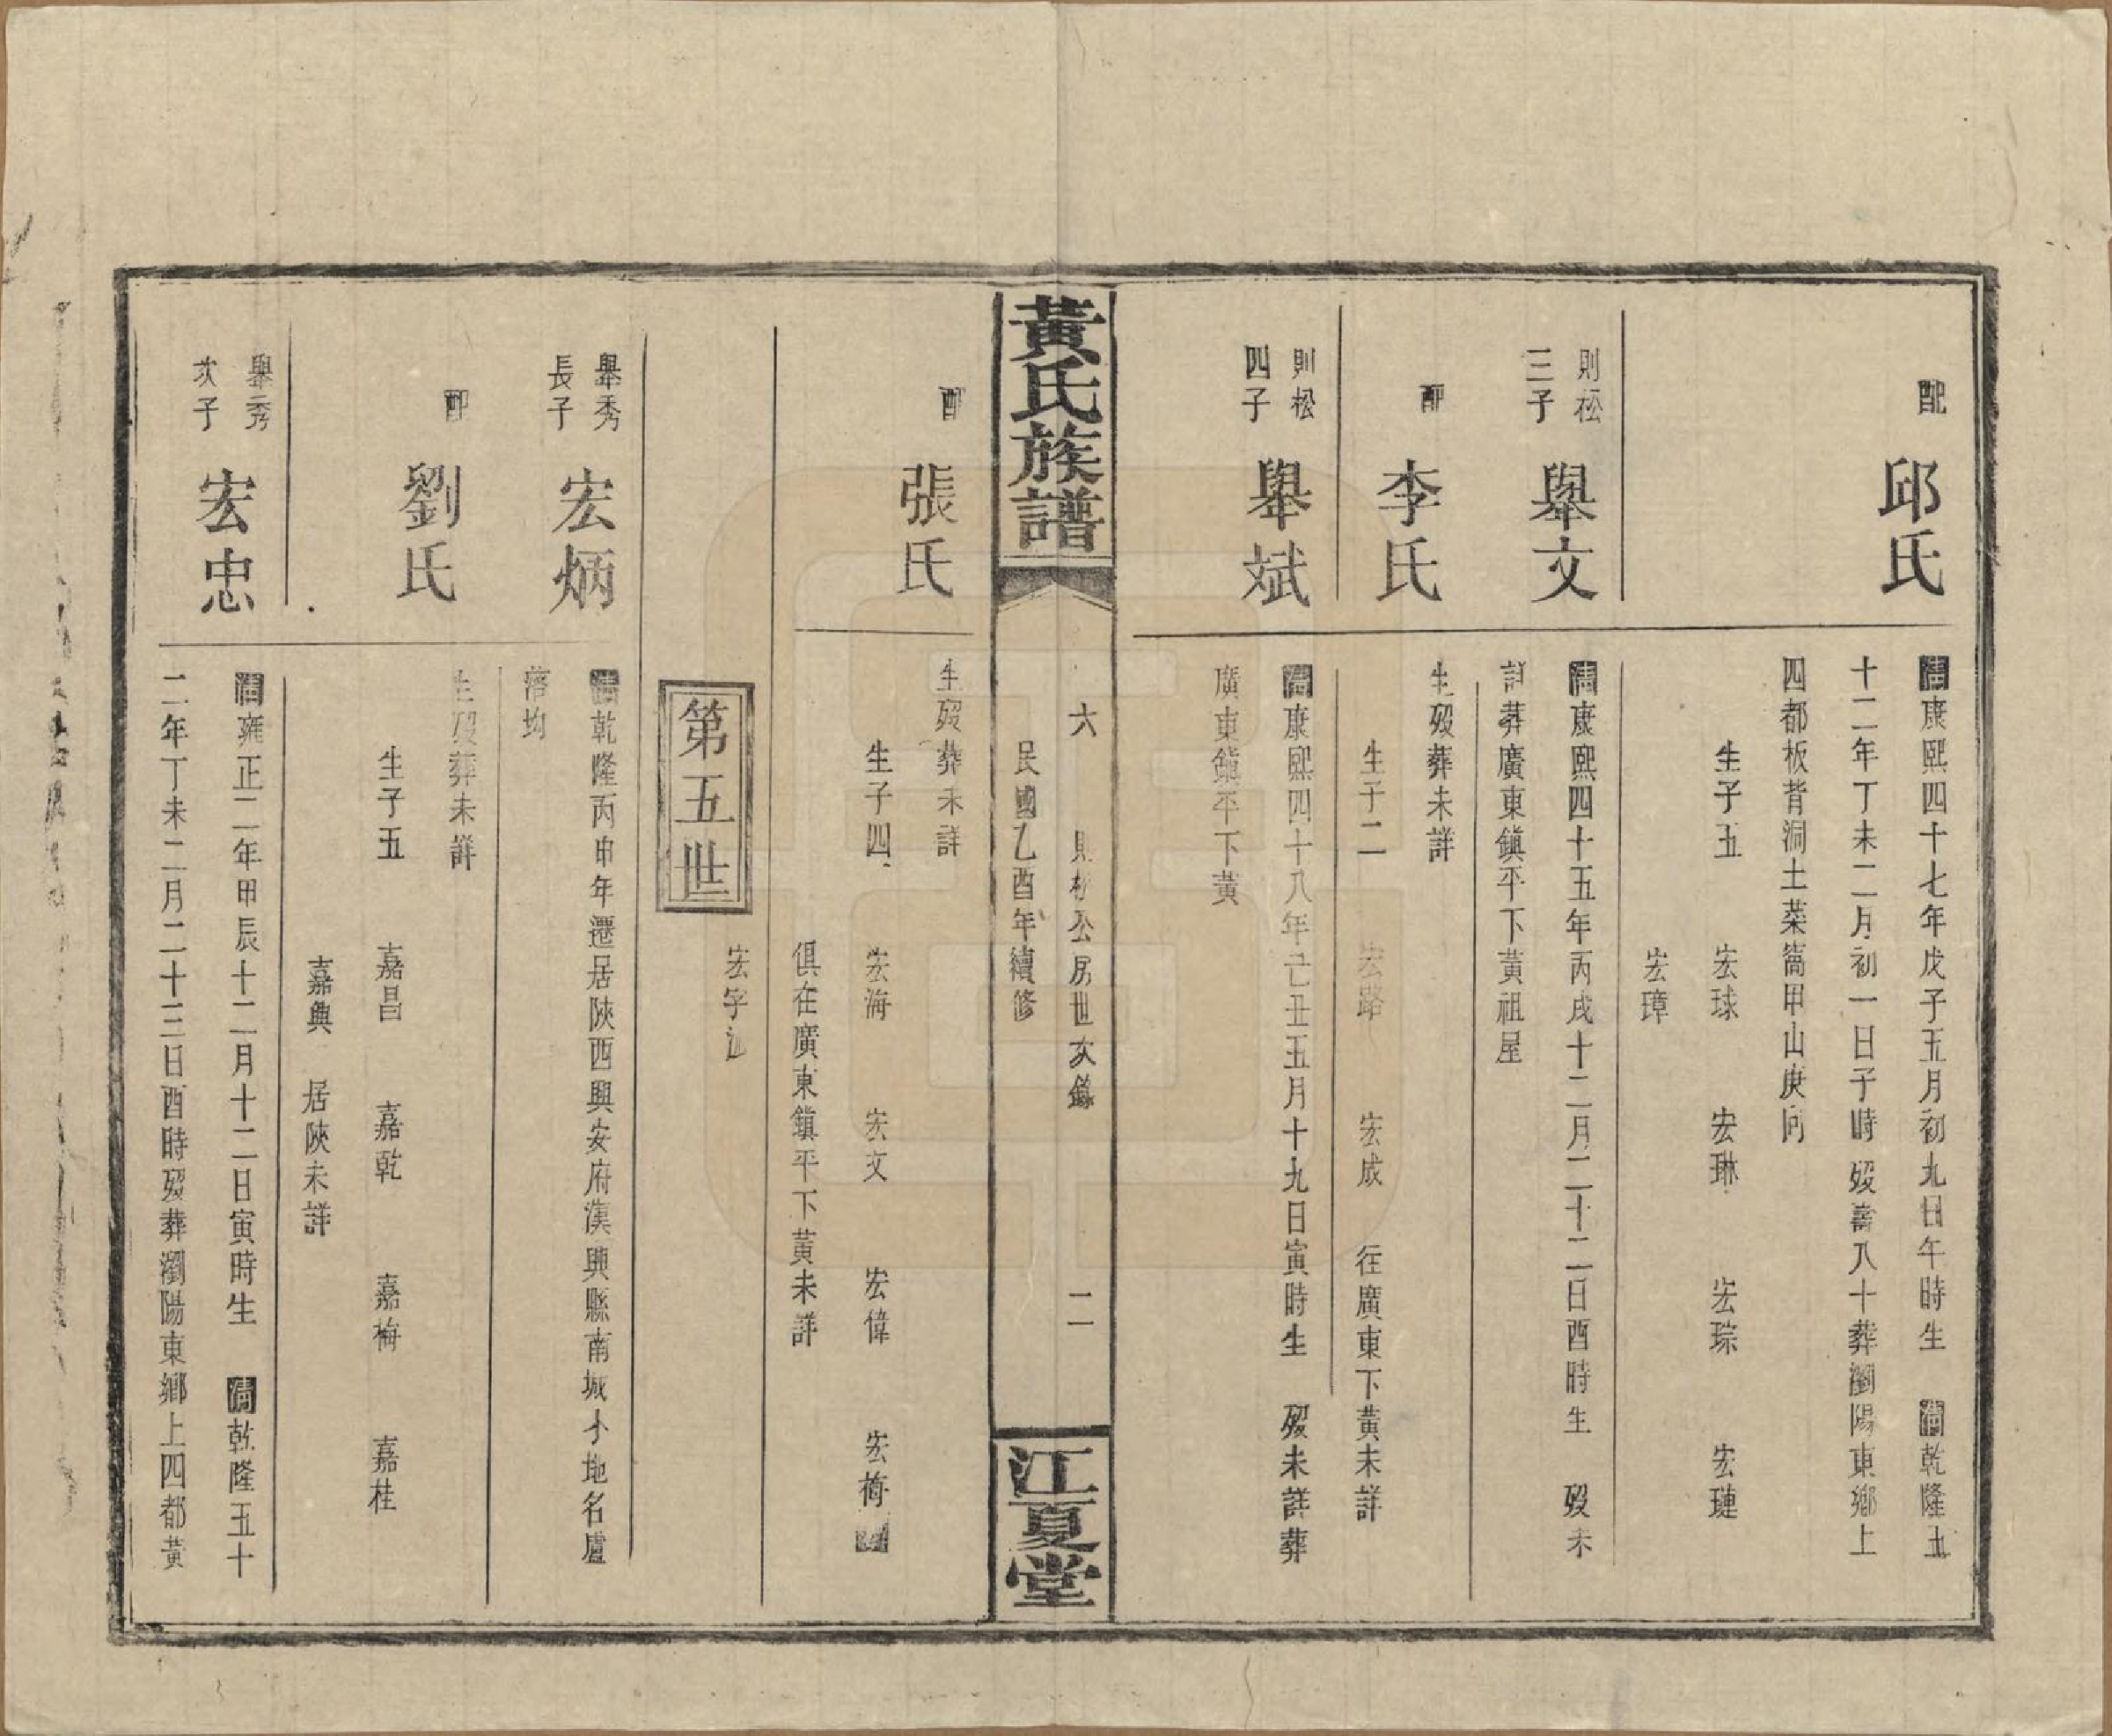 配
邱氏
清康熙四十七年戊子五月初九日午時生 清乾隆五
十二年丁未二月初一日子時歿壽八十葬瀏陽東鄉上
四都板背洞土菜窩甲山庚向
生子五 宏球 宏琳 宏琮 宏璉
宏璋
則松
三子
舉文
清康熙四十五年丙戌十二月二十二日酉時生 歿未
詳葬廣東鎮平下黃祖屋
配
李氏
生歿葬未詳
生子二 宏路 宏成 往廣東下黃未詳
則松
四子
舉斌
清康熙四十八年己丑五月十九日寅時生 歿未詳葬
廣東鎮平下黃
黃氏族譜
六 則松公房世次錄 二
民國乙酉年續修
江夏堂
配
張氏
生歿葬未詳
生子四 宏海 宏文 宏偉 宏梅
俱在廣東鎮平下黃未詳
宏字派
第五世
舉秀
長子
宏炳
清乾隆丙申年遷居陝西興安府漢興縣南城小地名廬
落均
配
劉氏
生歿葬未詳
生子五 嘉昌 嘉乾 嘉梅 嘉桂
嘉興 居陝未詳
舉秀
次子
宏忠
清雍正二年甲辰十二月十二日寅時生 清乾隆五十
二年丁未二月二十三日酉時歿葬瀏陽東鄉上四都黃